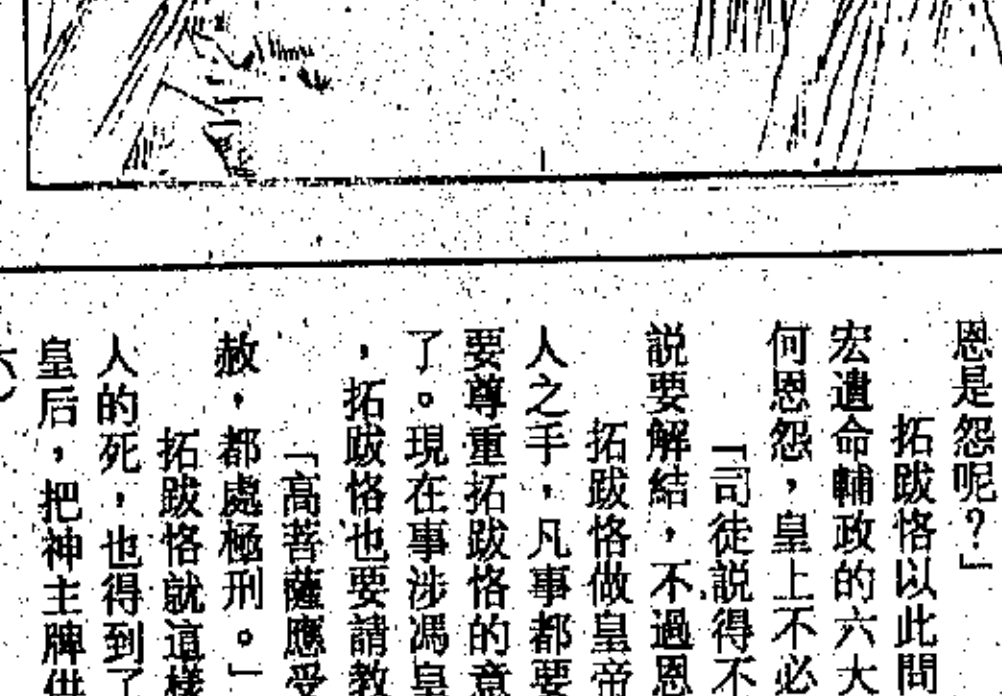 恩是怨呢？」
拓跋恪以此問
宏遺命輔政的六大
何恩怨，皇上不必
「司徒説得不
説要解結，不過恩
拓跋恪做皇帝
人之手，凡事都要
要尊重拓跋恪的意
了。現在事涉馮皇
，拓跋恪也要請教
「高菩薩應受
赦，都處極刑。」
拓跋恪就這樣
人的死，也得到了
皇后，把神主牌供